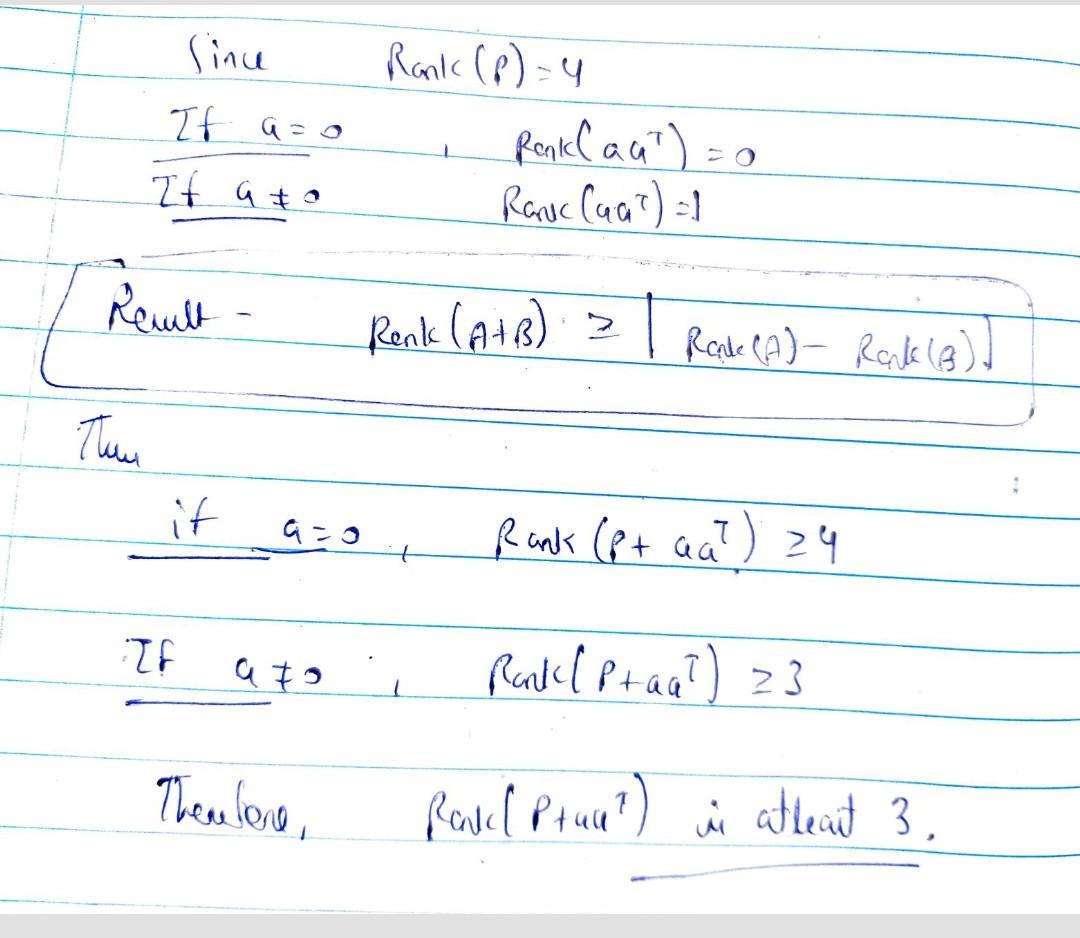 Since Rank(P) = 4
If a = 0 , Rank(aaᵀ) = 0
If a ≠ 0 Rank(aaᵀ) = 1
Result - Rank(A+B) ≥ | Rank(A) - Rank(B) |
Then
if a = 0 , Rank(P + aaᵀ) ≥ 4
If a ≠ 0 , Rank(P + aaᵀ) ≥ 3
Therefore, Rank(P + aaᵀ) is atleast 3.